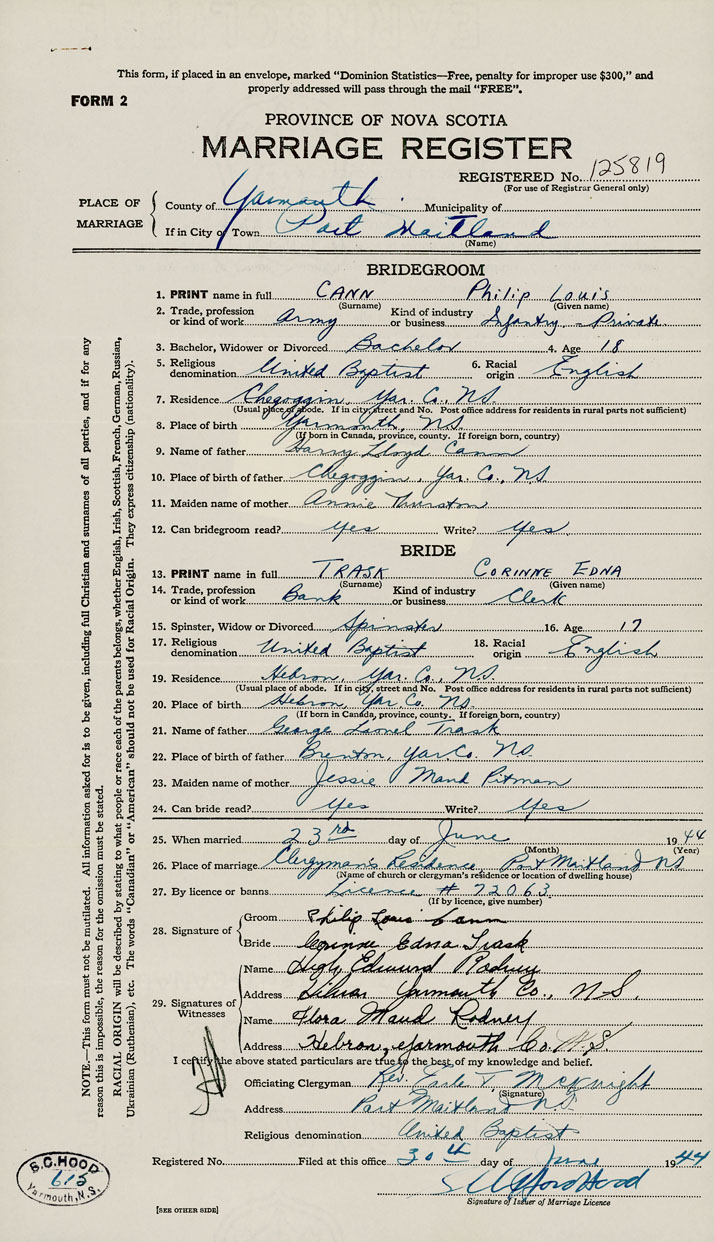 This form, if placed in an envelope, marked "Dominion Statistics—Free, penalty for improper use $300," and
properly addressed will pass through the mail "FREE".
FORM 2
PROVINCE OF NOVA SCOTIA
MARRIAGE REGISTER
REGISTERED No. 125819
(For use of Registrar General only)
PLACE OF MARRIAGE
County of Yarmouth Municipality of
If in City or Town Port Maitland
(Name)
BRIDEGROOM
1. PRINT name in full CANN Philip Louis
(Surname) (Given name)
2. Trade, profession or kind of work Army Kind of industry or business Infantry - Private
3. Bachelor, Widower or Divorced Bachelor 4. Age 18
5. Religious denomination United Baptist 6. Racial origin English
7. Residence Chegoggin, Yar. Co., N.S.
(Usual place of abode. If in city, street and No. Post office address for residents in rural parts not sufficient)
8. Place of birth Yarmouth, N.S.
(If born in Canada, province, county. If foreign born, country)
9. Name of father Harry Lloyd Cann
10. Place of birth of father Chegoggin, Yar. Co., N.S.
11. Maiden name of mother Annie Thurston
12. Can bridegroom read? Yes Write? Yes
BRIDE
13. PRINT name in full TRASK CORINNE EDNA
(Surname) (Given name)
14. Trade, profession or kind of work Bank Kind of industry or business Clerk
15. Spinster, Widow or Divorced Spinster 16. Age 17
17. Religious denomination United Baptist 18. Racial origin English
19. Residence Hebron, Yar. Co., N.S.
(Usual place of abode. If in city, street and No. Post office address for residents in rural parts not sufficient)
20. Place of birth Hebron, Yar. Co. N.S.
(If born in Canada, province, county. If foreign born, country)
21. Name of father George Lionel Trask
22. Place of birth of father Brenton, Yar Co. N.S.
23. Maiden name of mother Jessie Maud Pitman
24. Can bride read? Yes Write? Yes
25. When married 23rd day of June 1944
(Month) (Year)
26. Place of marriage Clergyman's Residence, Port Maitland N.S
(Name of church or clergyman's residence or location of dwelling house)
27. By licence or banns Licence # 72063
(If by licence, give number)
28. Signature of
Groom Philip Louis Cann
Bride Corinne Edna Trask
29. Signatures of Witnesses
Name Hugh Edward Rodney
Address Yarmouth Co., N.S.
Name Flora Maud Rodney
Address Hebron, Yarmouth Co. N.S.
I certify the above stated particulars are true to the best of my knowledge and belief.
Officiating Clergyman Rev. Earle T. McKnight
(Signature)
Address Port Maitland N.S.
Religious denomination United Baptist
Registered No. Filed at this office 30th day of June 1944
Signature of Issuer of Marriage Licence
[SEE OTHER SIDE]
S.C. HOOD
613
Yarmouth, N.S.
NOTE.—This form must not be mutilated. All information asked for is to be given, including full Christian and surnames of all parties, and if for any
reason this is impossible, the reason for the omission must be stated.
RACIAL ORIGIN will be described by stating to what people or race each of the parents belongs, whether English, Irish, Scottish, French, German, Russian,
Ukrainian (Ruthenian), etc. The words "Canadian" or "American" should not be used for Racial Origin. They express citizenship (nationality).